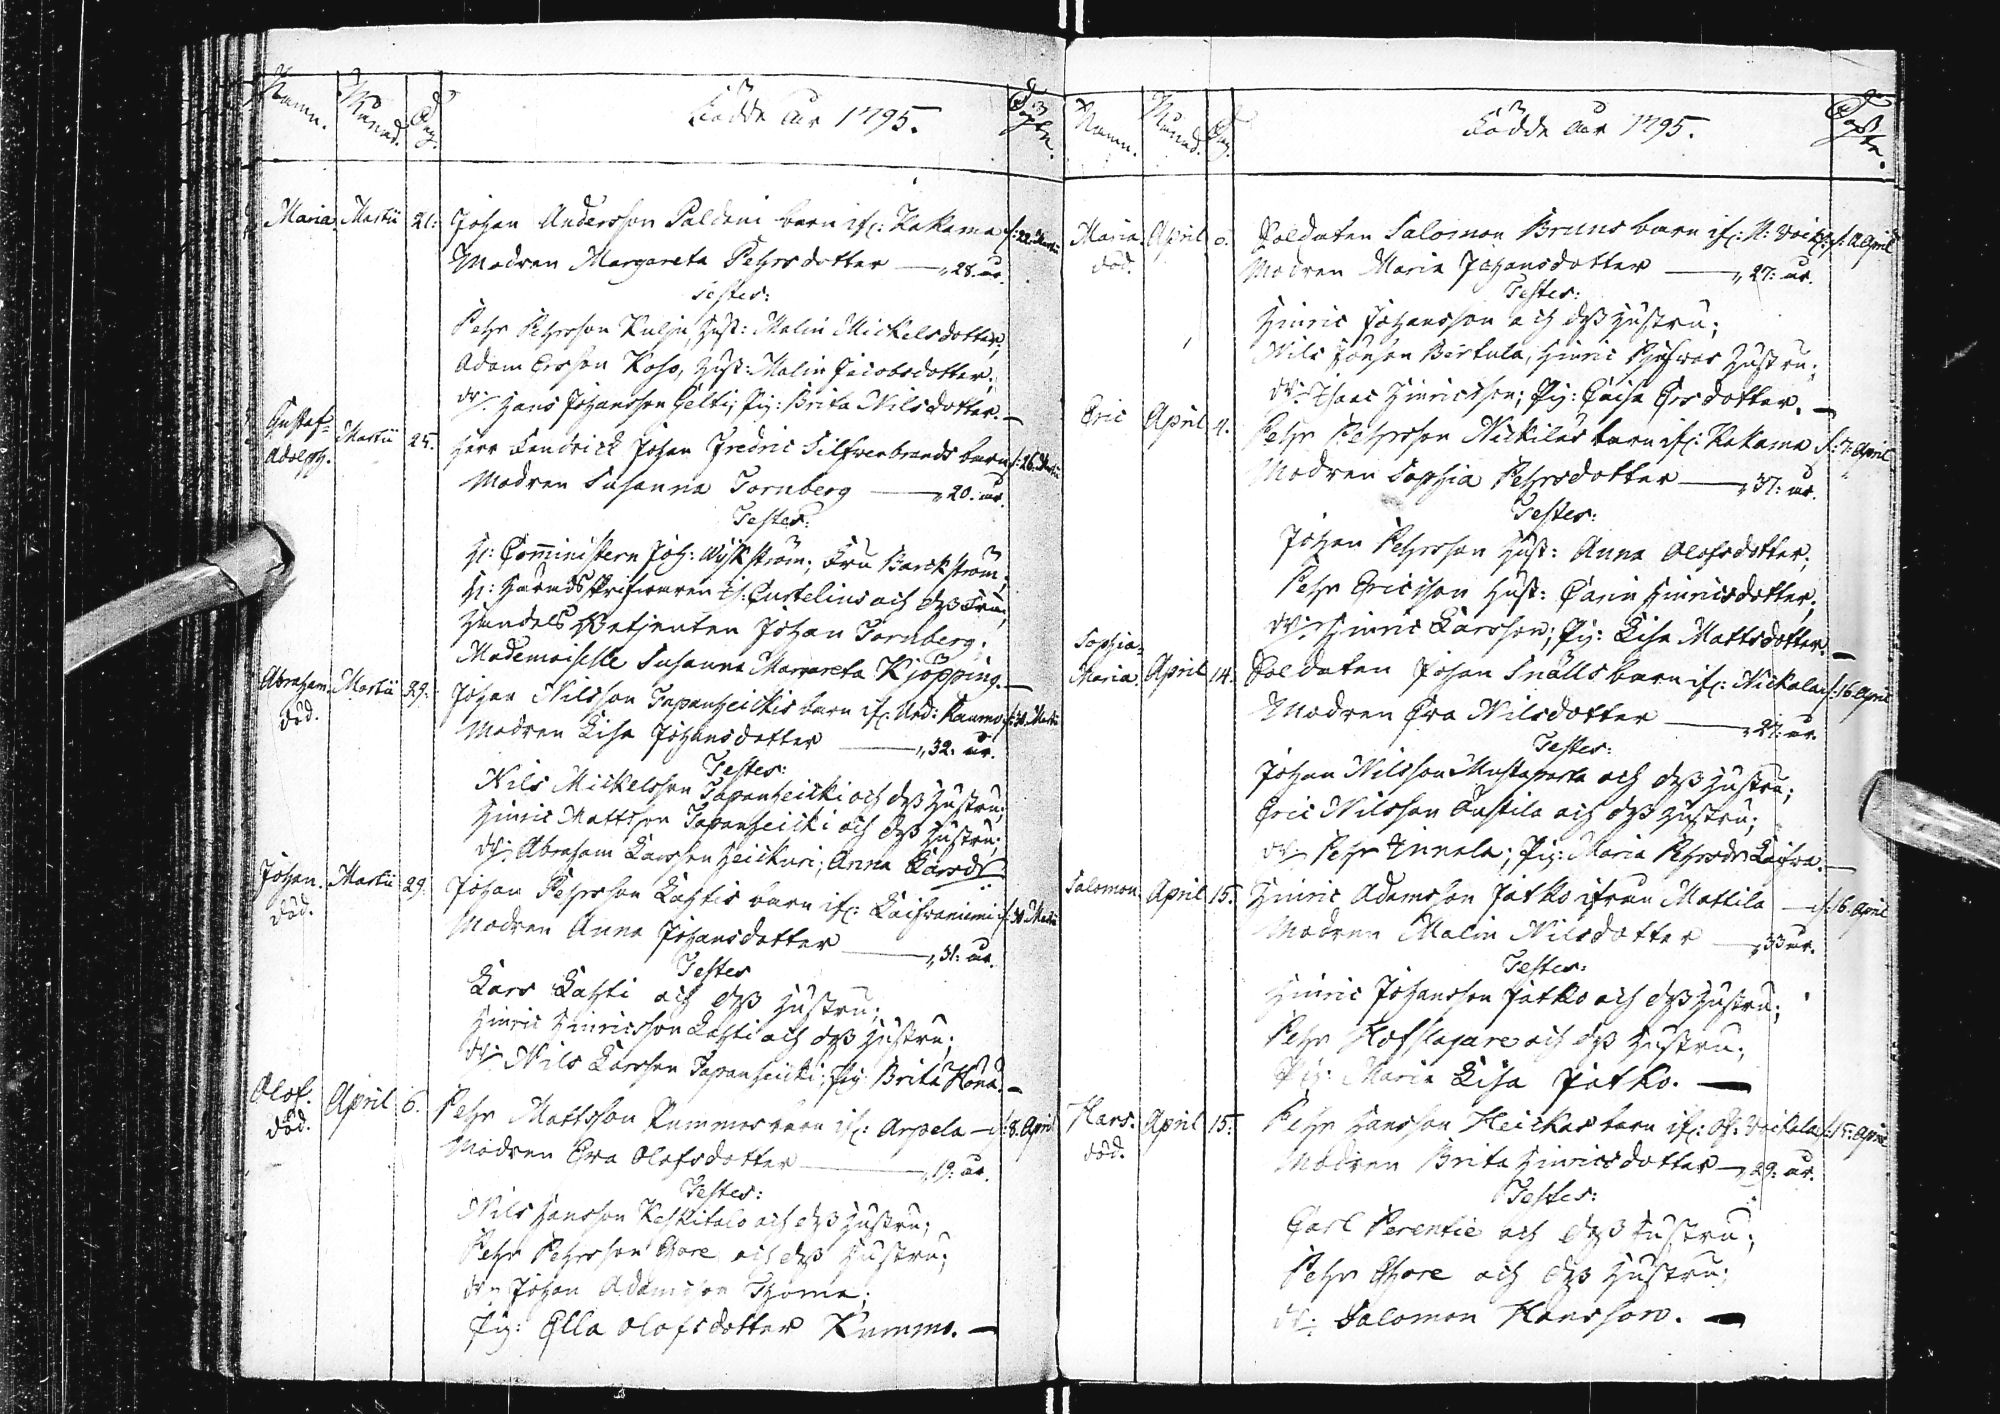 Namn.
Månad.
Dag.
Födde Åhr 1795.
Döpte.
Maria Martii 21: Johan Andersson Paldani barn ifr: Kakama d: 22. Martii
Modren Margareta Pehrsdotter — 28. år.
Testes:
Pehr Pehrsson Kulju, Hust: Malin Mickelsdotter;
Adam Ersson Koso, Hust: Malin Jacobsdotter;
Dr: Hans Johansson Gelti; Pig: Brita Nilsdotter. —
Gustaf Adolph. Martii 25. Herr Fendrick Johan Fredric Silfverbrands barn d: 26. Martii
Modren Susanna Tornberg — 20. år.
Testes:
H: Comministern Joh: Wijkström; Fru Barckström;
H: Häradsskrifwaren Is: Castelius och dess Fru;
Handels Betjenten Johan Tornberg;
Mademoiselle Susanna Margareta Kjöpping. —
Abraham. död. Martii 29. Johan Nilsson Tapanheickis barn ifr: Ned: Raumo d: 30. Martii
Modren Lisa Johansdotter — 32. år.
Testes:
Nils Mickelsson Tapanheicki och dess Hustru;
Hinric Mattsson Tapanheicki och dess Hustru;
Dr: Abraham Larsson Heickuri; Anna Larsdr
Johan. död. Martii 29. Johan Pehrsson Lahtis barn ifr: Laifwaniemi d: 30. Martii
Modren Anna Johansdotter — 31. år.
Testes
Lars Lahti och dess Hustru;
Hinric Hinricsson Lahti och dess Hustru;
Dr: Nils Larsson Tapanheicki; Pig: Brita Kona. —
Olof. död. April 6. Pehr Mattsson Kummos barn ifr: Arpela — d: 8. April
Modren Eva Olofsdotter — 19. år.
Testes:
Nils Hansson Keskitalo och dess Hustru;
Pehr Pehrsson Thore och dess Hustru;
Dr: Johan Adamsson Thoma;
Pig: Ella Olofsdotter Kummo. —
Namn.
Månad.
Dag.
Födde Åhr 1795.
Döpte.
Maria död. April Soldaten Salomon Bruns barn ifr: N: d: April
Modren Maria Johansdotter — 27: år.
Testes:
Hinric Johansson och dess Hustru;
Nils Jönsson Bertula, Hinric Hustru;
Dr: Isaac Hinricsson; Pig: Caisa Ersdotter. —
Eric April 4. Pehr Pehrsson Nickilas barn ifr: Kakama d: 7. April
Modren Sophia Pehrsdotter — 37: år.
Testes:
Johan Pehrsson Hust: Anna Olofsdotter;
Pehr Ericsson Hust: Carin Hinricsdotter;
Dr: Hinric Larsson; Pig: Lisa Mattsdotter. —
Sophia Maria. April 14. Soldaten Johan Snälls barn ifr: Nickala d: 16. April
Modren Eva Nilsdotter — 27: år.
Testes:
Johan Nilsson Mustaparta och dess Hustru;
Eric Nilsson Kustila och dess Hustru;
Dr: Pehr Innala; Pig: Maria Pehrsdr Laifva. —
Salomon. April 15. Hinric Adamsson Jatko ifrån Mattila — d: 16. April
Modren Malin Nilsdotter — 33 år.
Testes:
Hinric Johansson Jatko och dess Hustru;
Pehr Hofslagare och dess Hustru;
Pig: Maria Lisa Jatko. —
Hans. död. April 15. Pehr Hansson Heickas barn ifr: Öf: Voickala d: 15. April
Modren Brita Hinricsdotter — 29: år.
Testes:
Carl Perentie och dess Hustru;
Pehr Thore och dess Hustru;
Dr: Salomon Hansson. —